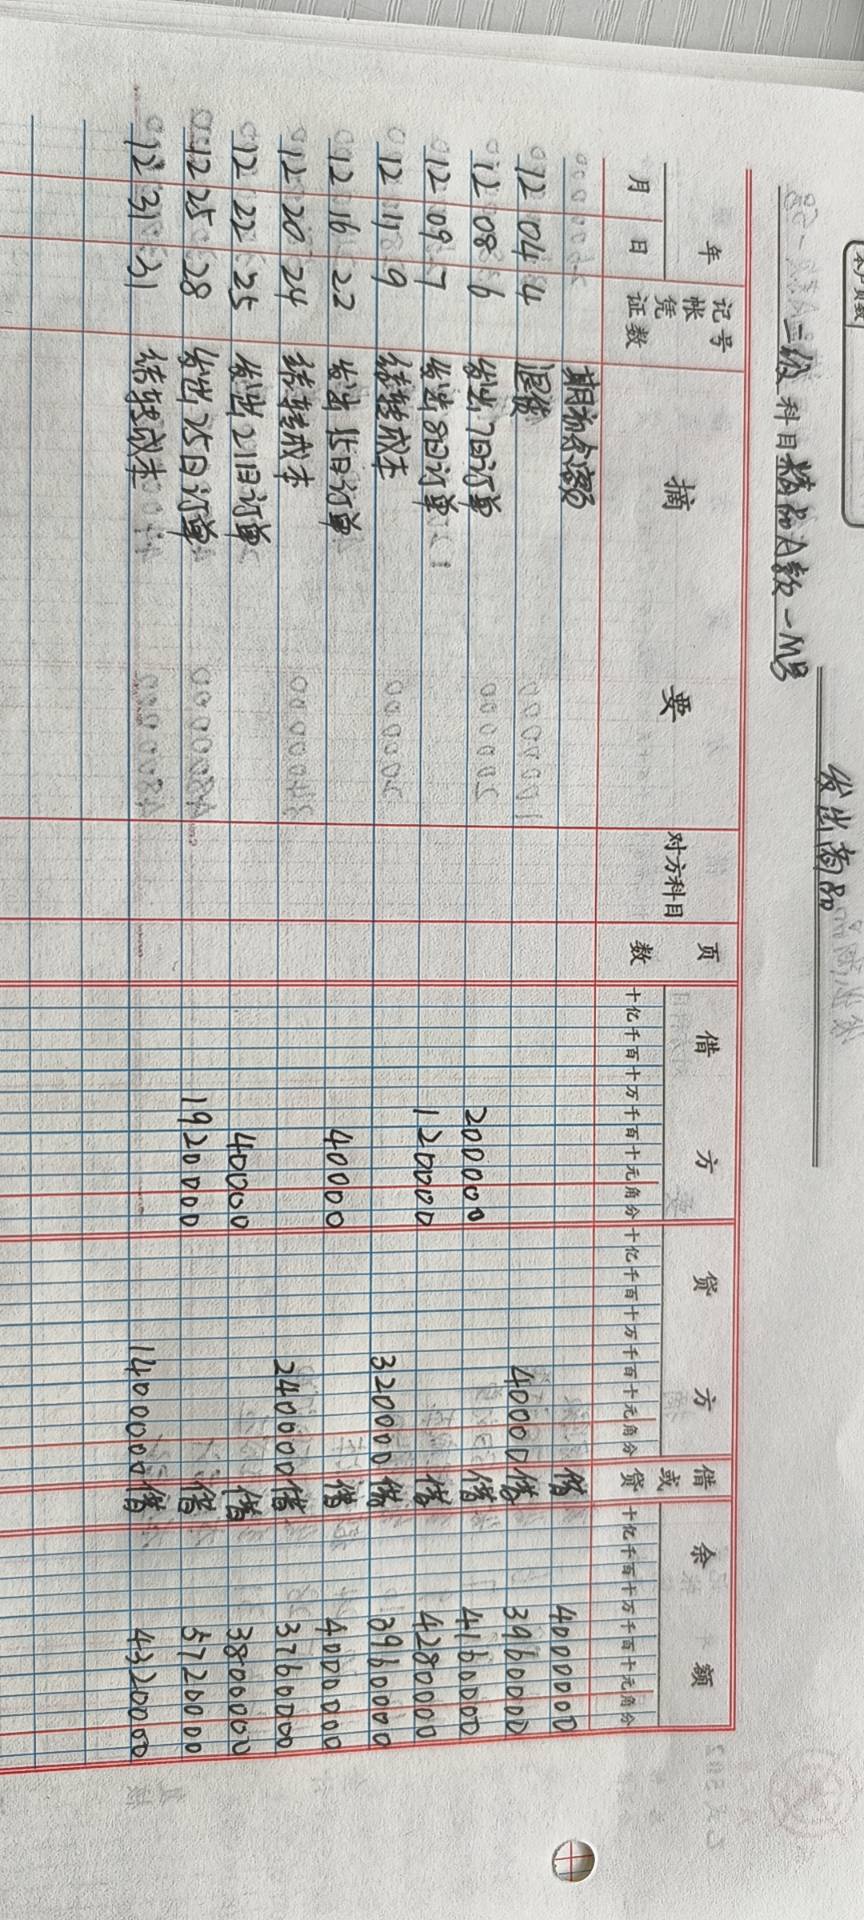 本户页数
发出商品
二级科目精品A款-M号
年 记帐凭证号数 摘要 对方科目 页数 借方 贷方 借或贷 余额
月 日 十亿千百十万千百十元角分 十亿千百十万千百十元角分 十亿千百十万千百十元角分
期初余额 借 4000000
12 04 4 退货 40000 借 3960000
12 08 6 发出7日订单 200000 借 4160000
12 09 7 发出8日订单 120000 借 4280000
12 11 9 结转成本 320000 借 3960000
12 16 22 发出15日订单 40000 借 4000000
12 20 24 结转成本 240000 借 3760000
12 22 25 发出21日订单 40000 借 3800000
12 25 28 发出25日订单 1920000 借 5720000
12 31 31 结转成本 1400000 借 4320000